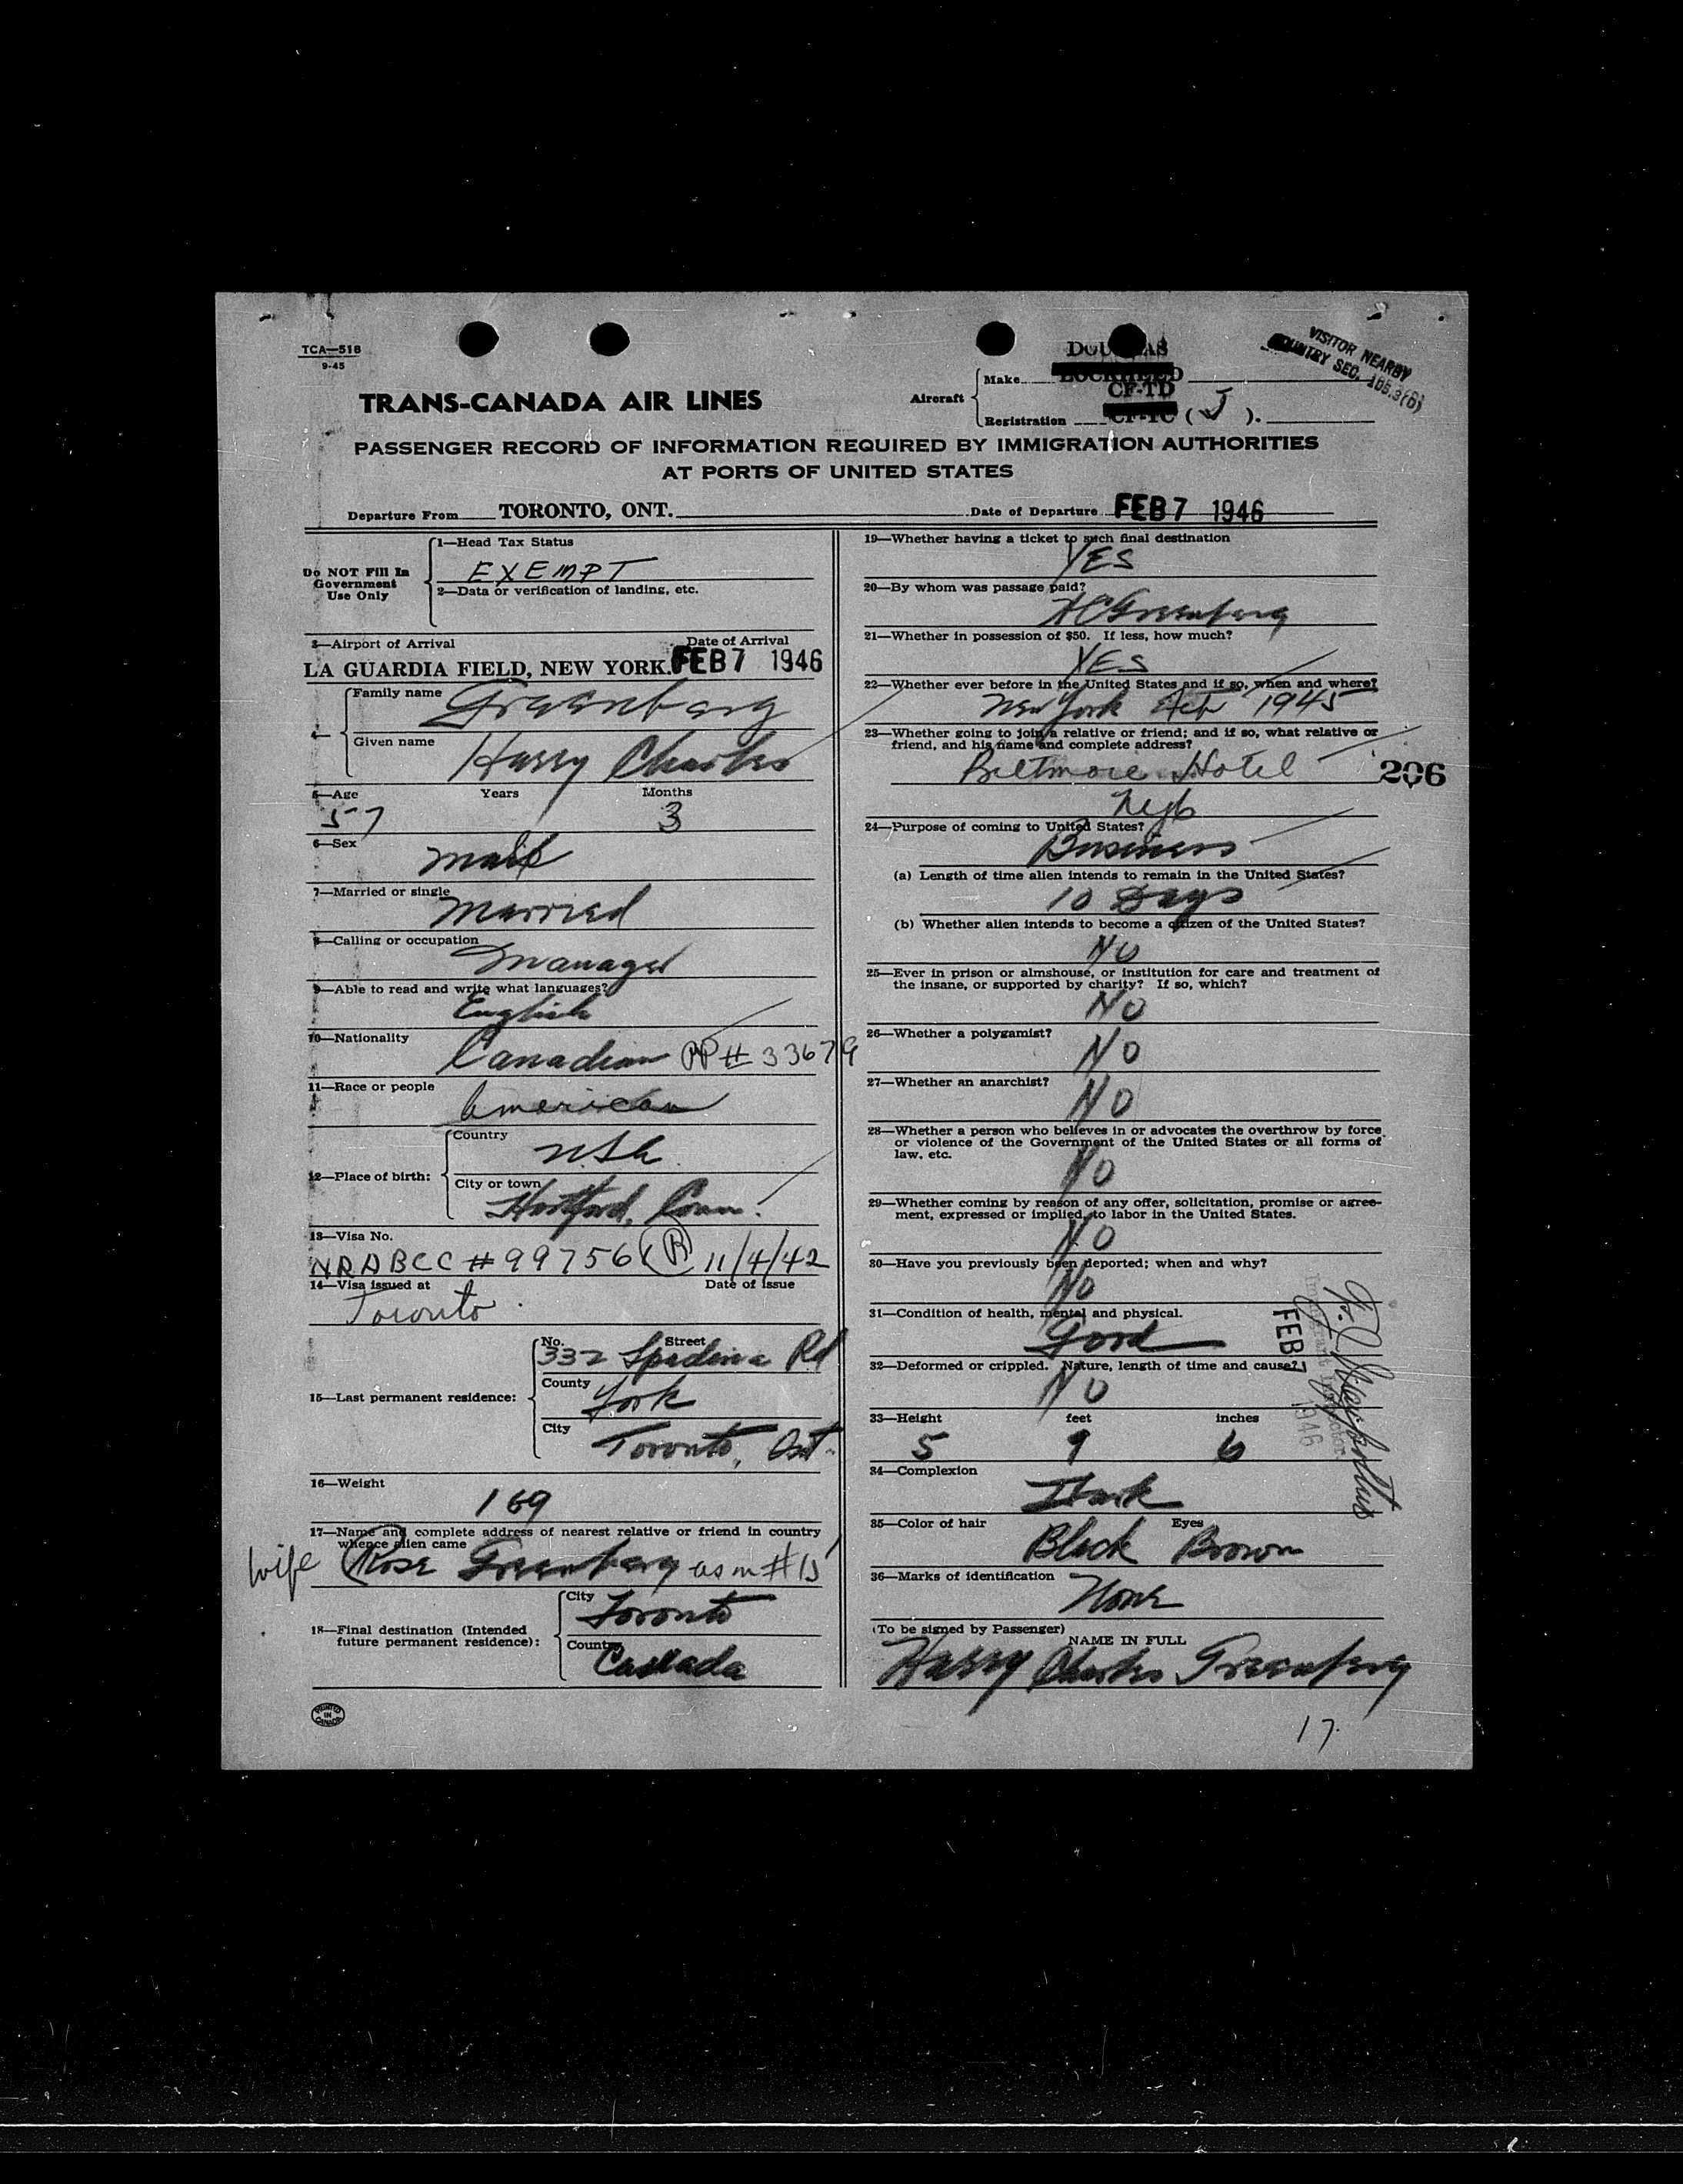 TCA—518
9-45
VISITOR NEARBY
COUNTRY SEC. 105.3(b)
TRANS-CANADA AIR LINES
Aircraft
Make DOUGLAS
LOCKHEED
CF-TD
Registration CF-TC ( J ).
PASSENGER RECORD OF INFORMATION REQUIRED BY IMMIGRATION AUTHORITIES
AT PORTS OF UNITED STATES
Departure From TORONTO, ONT. Date of Departure FEB 7 1946
Do NOT Fill In
Government
Use Only
1—Head Tax Status
EXEMPT
2—Data or verification of landing, etc.
3—Airport of Arrival Date of Arrival
LA GUARDIA FIELD, NEW YORK. FEB 7 1946
4—
Family name Greenberg
Given name Harry Charles
5—Age Years Months
57 3
6—Sex
male
7—Married or single
married
8—Calling or occupation
manager
9—Able to read and write what languages?
English
10—Nationality
Canadian PP # 33679
11—Race or people
American
12—Place of birth:
Country
USA
City or town
Hartford, Conn.
13—Visa No.
NRABCC # 997561 (R) 11/4/42
14—Visa issued at Date of issue
Toronto
15—Last permanent residence:
No. Street
332 Spadina Rd
County
York
City
Toronto, Ont.
16—Weight
169
17—Name and complete address of nearest relative or friend in country
whence alien came
wife Rose Greenberg as in #15
18—Final destination (Intended
future permanent residence):
City
Toronto
Country
Canada
PRINTED
IN
CANADA
19—Whether having a ticket to such final destination
YES
20—By whom was passage paid?
HC Greenberg
21—Whether in possession of $50. If less, how much?
YES
22—Whether ever before in the United States and if so, when and where?
New York 1945
23—Whether going to join a relative or friend; and if so, what relative or
friend, and his name and complete address?
Biltmore Hotel
206
24—Purpose of coming to United States?
Business
(a) Length of time alien intends to remain in the United States?
10 Days
(b) Whether alien intends to become a citizen of the United States?
NO
25—Ever in prison or almshouse, or institution for care and treatment of
the insane, or supported by charity? If so, which?
NO
26—Whether a polygamist?
NO
27—Whether an anarchist?
NO
28—Whether a person who believes in or advocates the overthrow by force
or violence of the Government of the United States or all forms of
law, etc.
NO
29—Whether coming by reason of any offer, solicitation, promise or agree-
ment, expressed or implied, to labor in the United States.
NO
30—Have you previously been deported; when and why?
NO
31—Condition of health, mental and physical.
Good
32—Deformed or crippled. Nature, length of time and cause?
NO
FEB 7 1946
Immigrant Inspector
33—Height feet inches
5 9 6
34—Complexion
Dark
35—Color of hair Eyes
Black Brown
36—Marks of identification
None
(To be signed by Passenger)
NAME IN FULL
Harry Charles Greenberg
17.